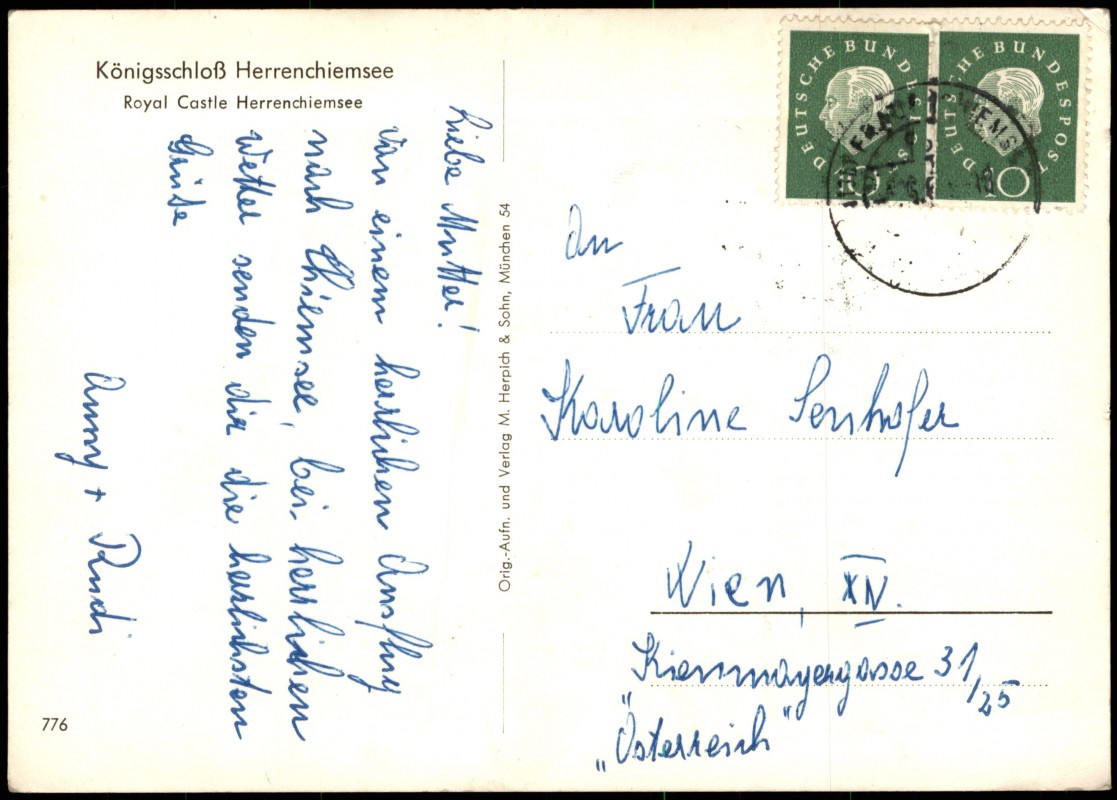 Königsschloß Herrenchiemsee
Royal Castle Herrenchiemsee
Liebe Mutter!
Von einem herrlichen Ausflug
nach Chiemsee, bei herrlichen
Wetter senden dir die herlichsten
Grüße
Anny + Rudi
776
Orig.-Aufn. und Verlag M. Herpich & Sohn, München 54
DEUTSCHE BUNDESPOST
10
DEUTSCHE BUNDESPOST
10
An
Frau
Karoline Senhofer
Wien, XIV.
Kienmayergasse 31/25
„Österreich"